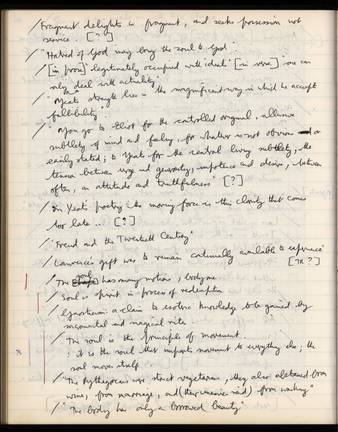 Fragment delights in fragment, and seeks possession not
service. [?]
/ "Hatred of God may bring the soul to God"
/ [in prose] "legitimately occupied with ideal" [in verse] "one can
only deal with actuality"
/ "Yeats strength lies in "the magnificent way in which he accepts
fallibility"
/ "You go to Eliot for the controlled original, allusive
subtlety of mind and feeling, for whatever is not obvious or
easily stated; to Yeats for the central living subtlety, the
tension between rage and generosity, impotence and desire, between
often, an attitude and truthfulness" [?]
/ In Yeats' poetry the moving force is this clarity that comes
too late.. [?]
/ "Freud and the Twentieth Century"
/ Lawrence's gift was to remain continually available to experience"
[?]
/ The soul has many motions, body one
/ Soul = Spirit in process of redemption
/ Gnosticism: a claim to esoteric knowledge to be gained by
sacramental and magical rite.
/ The soul is the principle of movement.
; it is the soul that imparts movement to everything else; the
soul moves itself
/ "The Pythagoreans were strict vegetarians, they also abstained from
wine, from marriage, and from washing"
/ "The body has only a borrowed beauty"